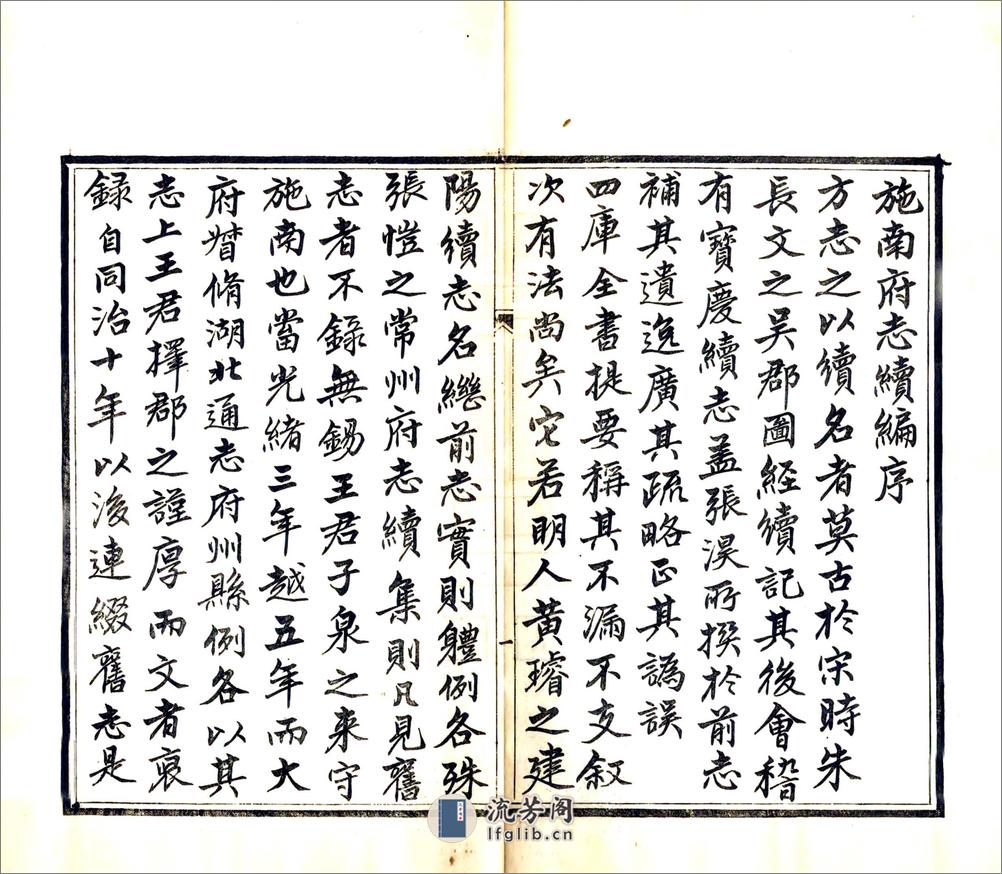 施南府志續編序
方志之以續名者莫古於宋時朱
長文之吳郡圖経續記其後會稽
有寶慶續志蓋張淏所撰於前志
補其遺逸廣其疏略正其譌誤
四庫全書提要稱其不漏不支叙
次有法尚矣它若明人黃璿之建
陽續志名繼前志實則軆例各殊
張愷之常州府志續集則凡見舊
志者不錄無錫王君子泉之來守
施南也當光緒三年越五年而大
府督脩湖北通志府州縣例各以其
志上王君擇郡之謹厚而文者裒
録自同治十年以後連綴舊志是
一
流芳阁
lfglib.cn